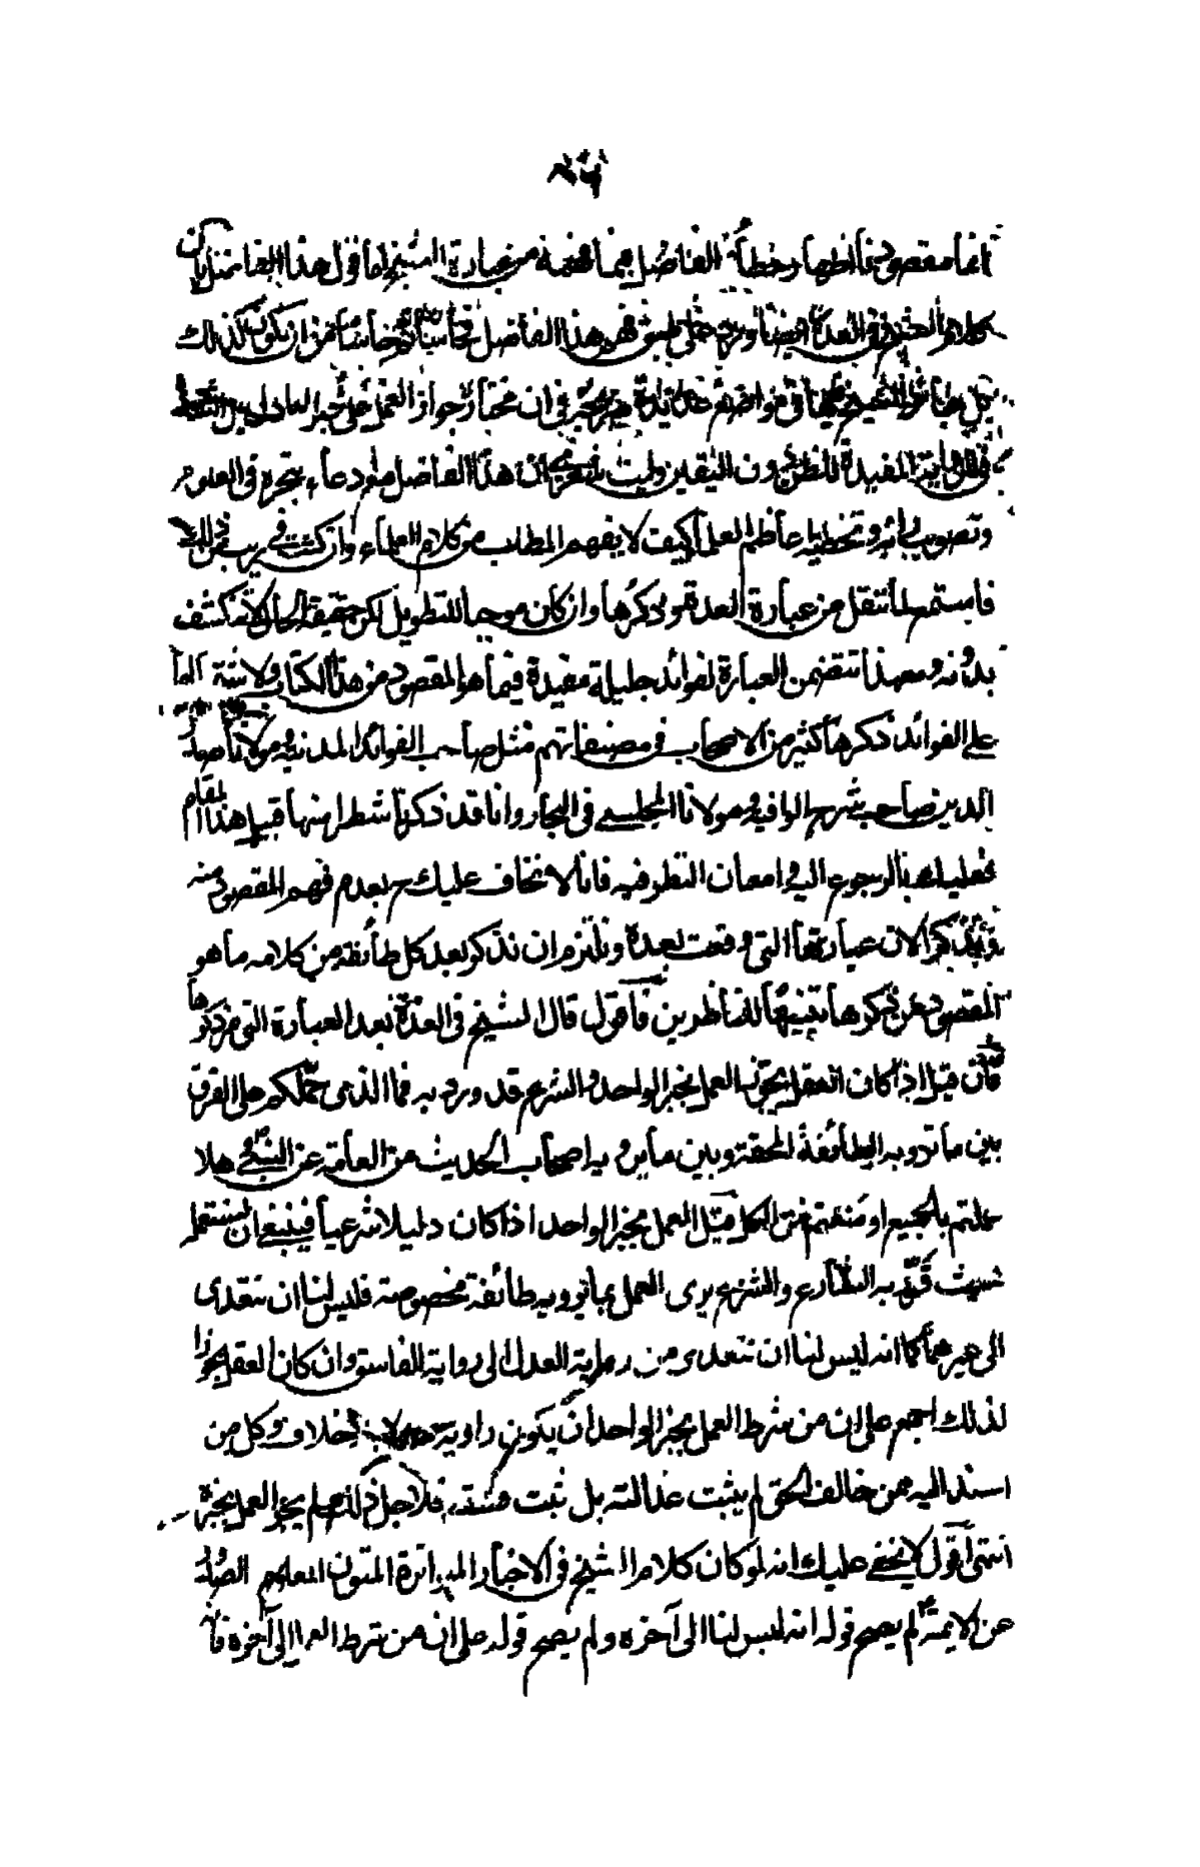 انما مقصودنا اظهار خطأ الفاضل فيما فهمه من عبارة الشيخ اما قول هذا الفاضل بان
كلام الشيخ في العدة ايضا على طبق فهم هذا الفاضل فحاشا ثم حاشا من ان يكون كذلك
بل في ان مختاره جواز العمل على خبر العادل
المفيدة للظن دون اليقين وليت ان هذا الفاضل مع ادعاء تبحره في العلوم
وتصويب رأيه وتخطئة اعاظم العلماء كيف لا يفهم المطالب من كلام العلماء وان كنت في ريب من ذلك
فاستمع لما ننقل من عبارة العدة وذكرها وان كان موجبا للتطويل لكن حقيقة الحال لا تنكشف
بدونه ومعهذا تتضمن العبارة لفوائد جليلة مفيدة فيما هو المقصود من هذا الكتاب ولاشتمالها
على الفوائد ذكرها كثير من الاصحاب في مصنفاتهم مثل صاحب الفوائد المدنية ومولانا صدر
الدين صاحب شرح الوافية ومولانا المجلسي في البحار وانا قد ذكرنا شطرا منها قبيل هذا المقام
فعليك بالرجوع اليه وامعان النظر فيه فانا لا نخاف عليك ح بعدم فهم المقصود منه
ونذكر الان عبارتها التي وقعت بعده ونلتزم ان نذكر بعد كل طائفة من كلامه ما هو
المقصود من ذكرها تنبيها للناظرين فاقول قال الشيخ في العدة بعد العبارة التي مر ذكرها
فان قيل اذا كان العقل يجوز العمل بخبر الواحد والشرع قد ورد به فما الذي حملكم على الفرق
بين ما ترويه الطائفة المحقة وبين ما يرويه اصحاب الحديث من العامة عن النبي ص هلا
عملتم بالجميع او منعتم من الكل قيل العمل بخبر الواحد اذا كان دليلا شرعيا فينبغي ان نستعمله
بحيث قررته الشارع والشرع يرى العمل بما يرويه طائفة مخصوصة فليس لنا ان نتعدى
الى غيرها كما انه ليس لنا ان نتعدى من رواية العدل الى رواية الفاسق وان كان العقل مجوزا
لذلك اجمع على ان من شرط العمل بخبر الواحد ان يكون راويه عدلا بلا خلاف وكل من
اسند اليه ممن خالف الحق لم يثبت عدالته بل ثبت فسقه فلاجل ذلك لم يجز العمل بخبره
انتهى اقول لا يخفى عليك انه لو كان كلام الشيخ في الاخبار المتواترة المتون المعلوم الصدور
عن الائمة ع لم يصح قوله انه ليس لنا الى آخره ولم يصح قوله على ان من شرط العمل الى آخره فان